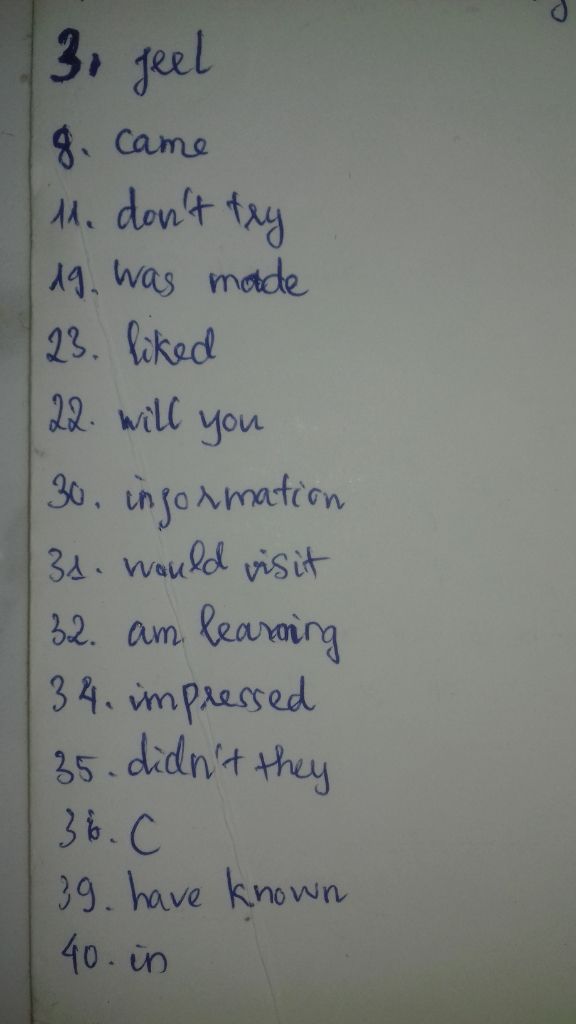 3. feel
8. came
11. don't try
19. was made
23. liked
22. will you
30. information
31. would visit
32. am learning
34. impressed
35. didn't they
36. C
39. have known
40. in